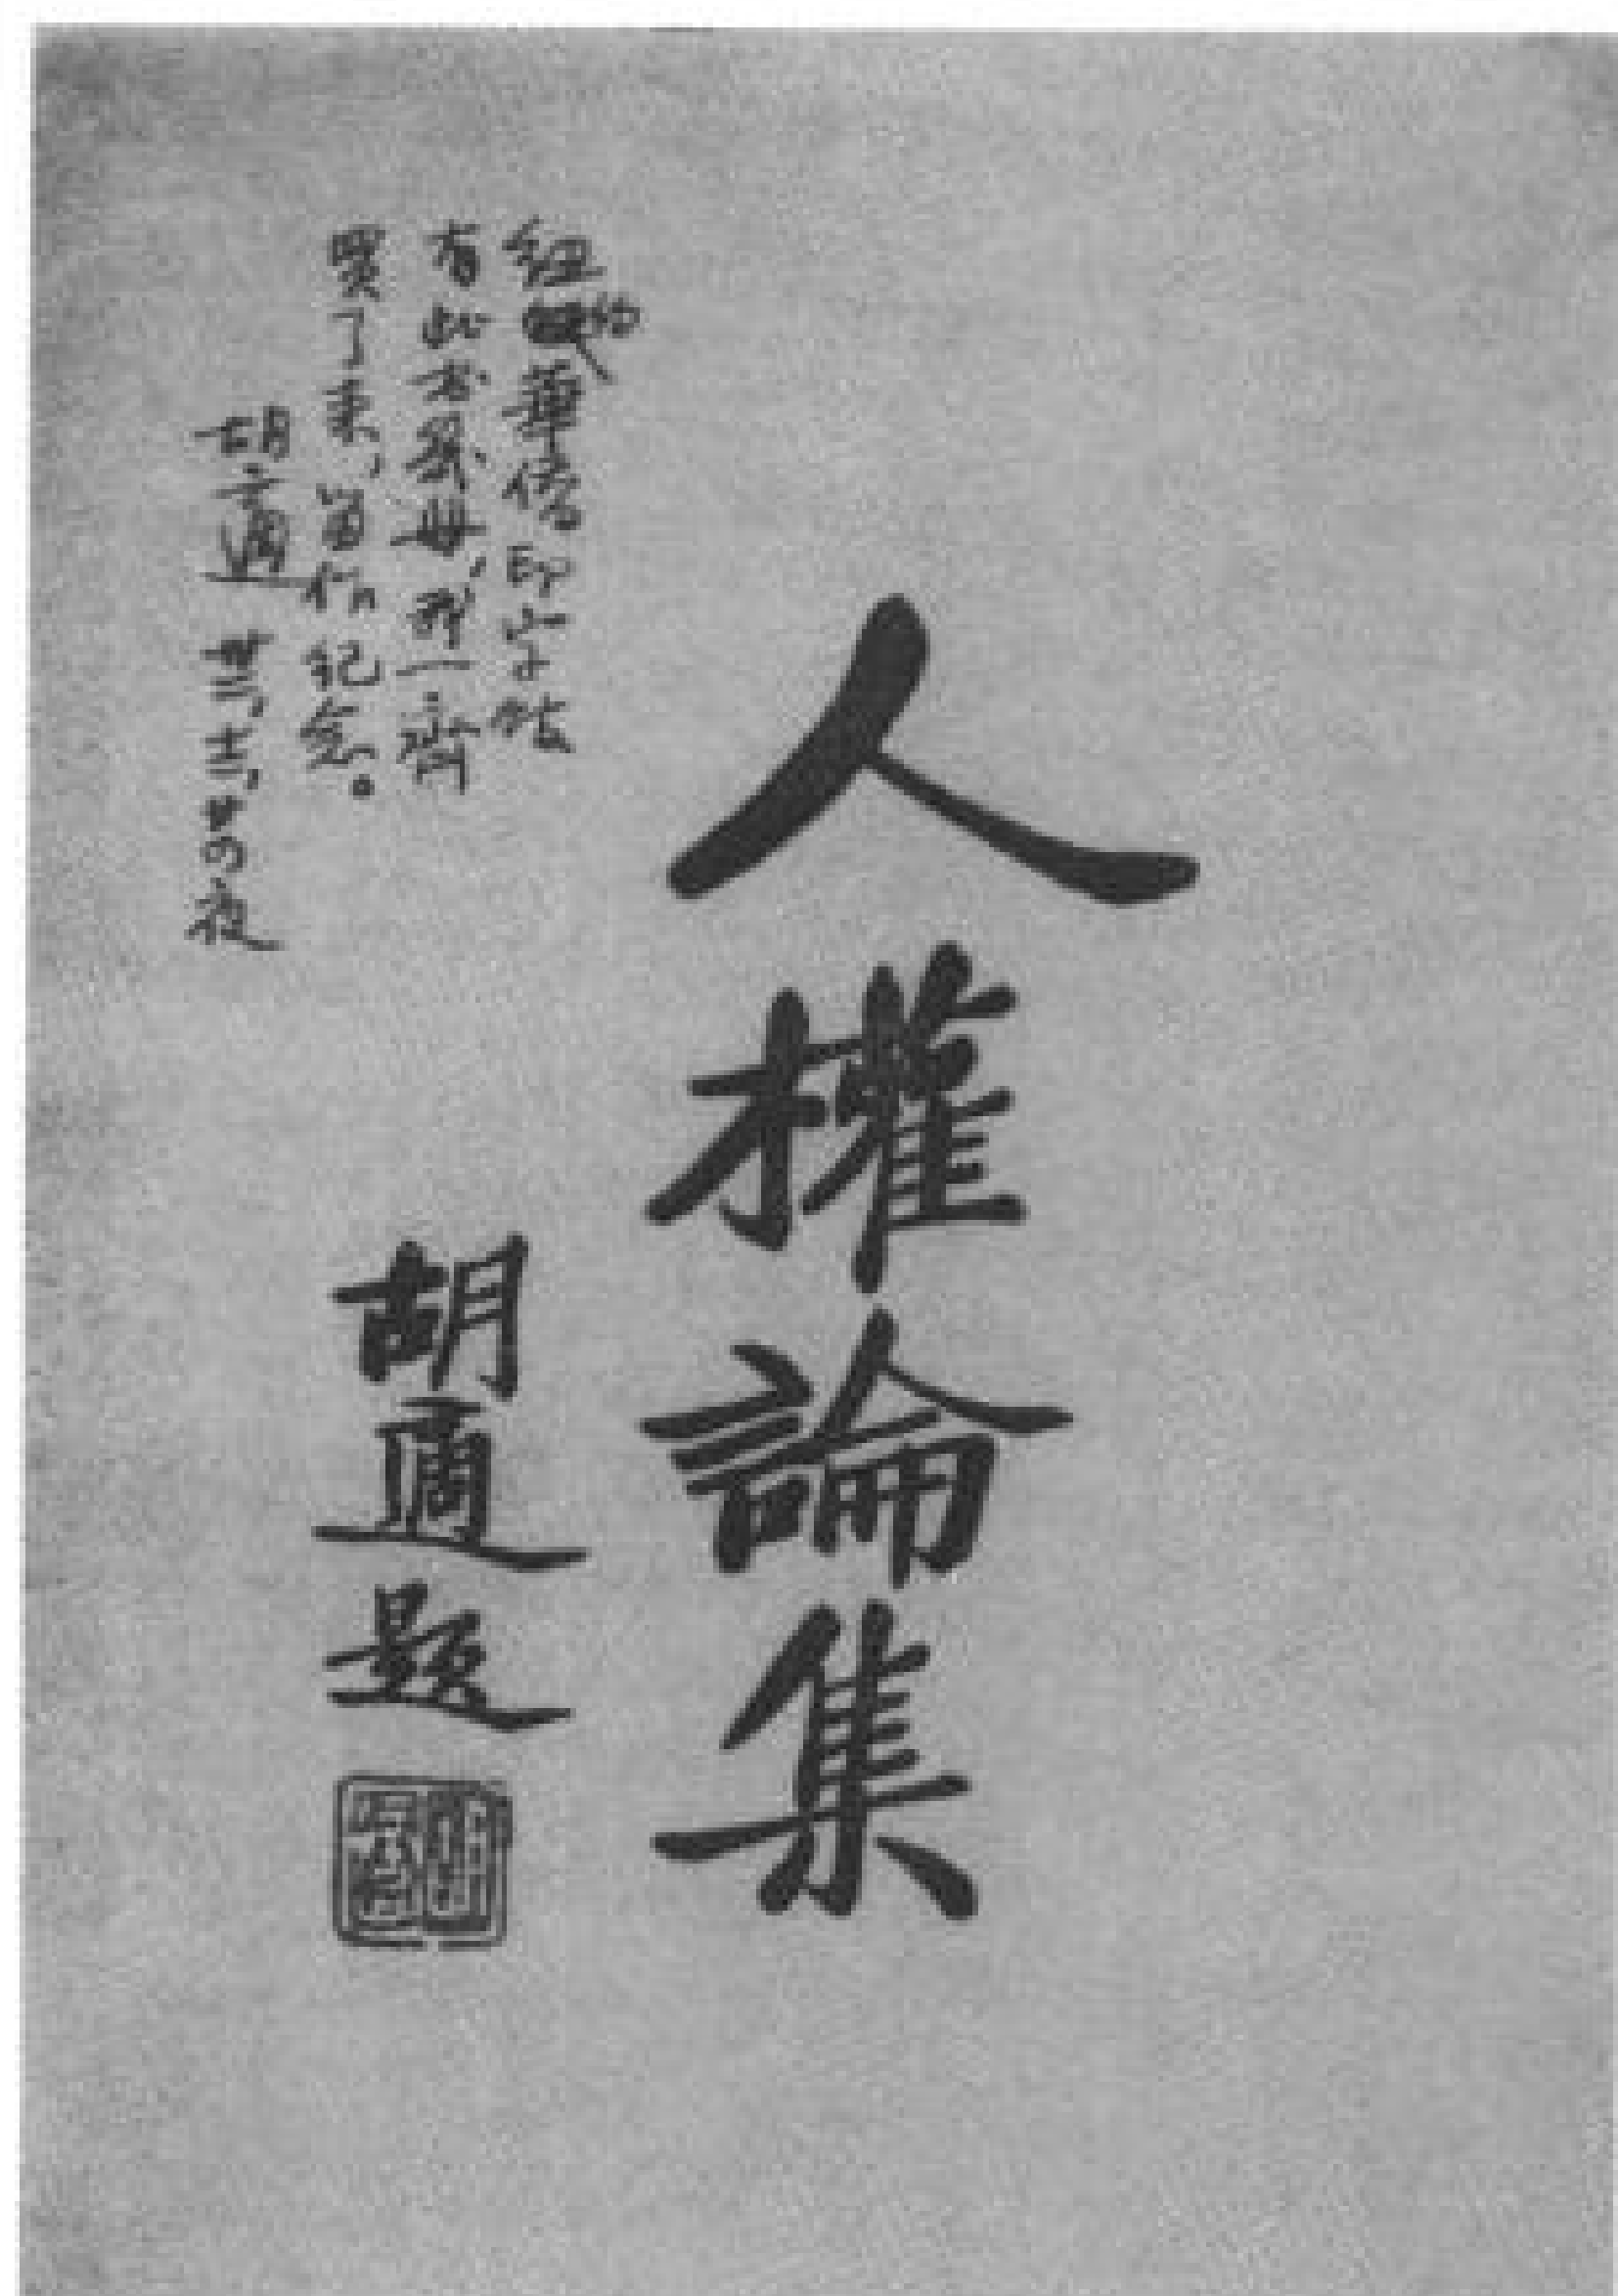 人權論集
胡適題
紐約華僑印字館
有此書幾冊,我一齊
買了來,留作紀念。
胡適 卅二,十二,廿四夜